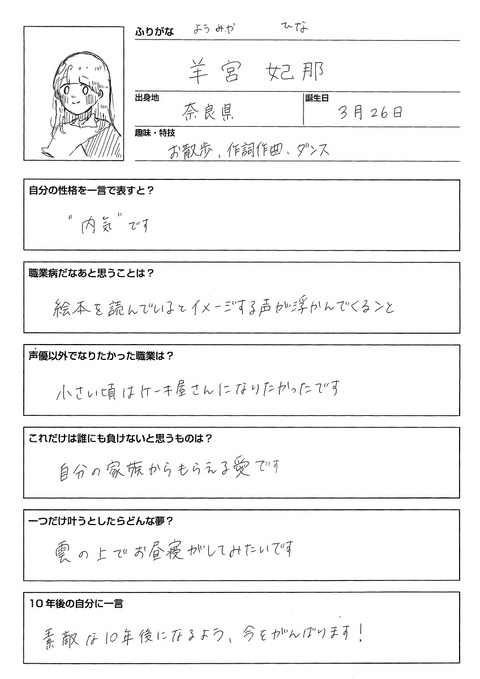 ふりがな ようみや ひな
羊宮 妃那
出身地 奈良県 誕生日 3月26日
趣味・特技
お散歩、作詞作曲、ダンス
自分の性格を一言で表すと?
"内気"です
職業病だなあと思うことは?
絵本を読んでいるとイメージする声が浮かんでくること
声優以外でなりたかった職業は?
小さい頃はケーキ屋さんになりたかったです
これだけは誰にも負けないと思うものは?
自分の家族からもらえる愛です
一つだけ叶うとしたらどんな夢?
雲の上でお昼寝がしてみたいです
10年後の自分に一言
素敵な10年後になるよう、今をがんばります!